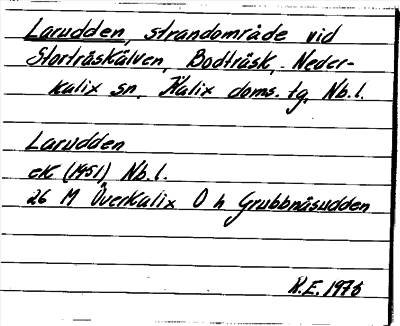 Larudden, strandområde vid
Storträskälven, Bodträsk, Neder-
kalix sn, Kalix doms. tg, Nb. l.
Larudden
ek (1951) Nb. l.
26 M Överkalix O h Grubbnäsudden
R.E. 1975